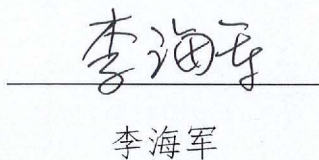 李海军
李海军